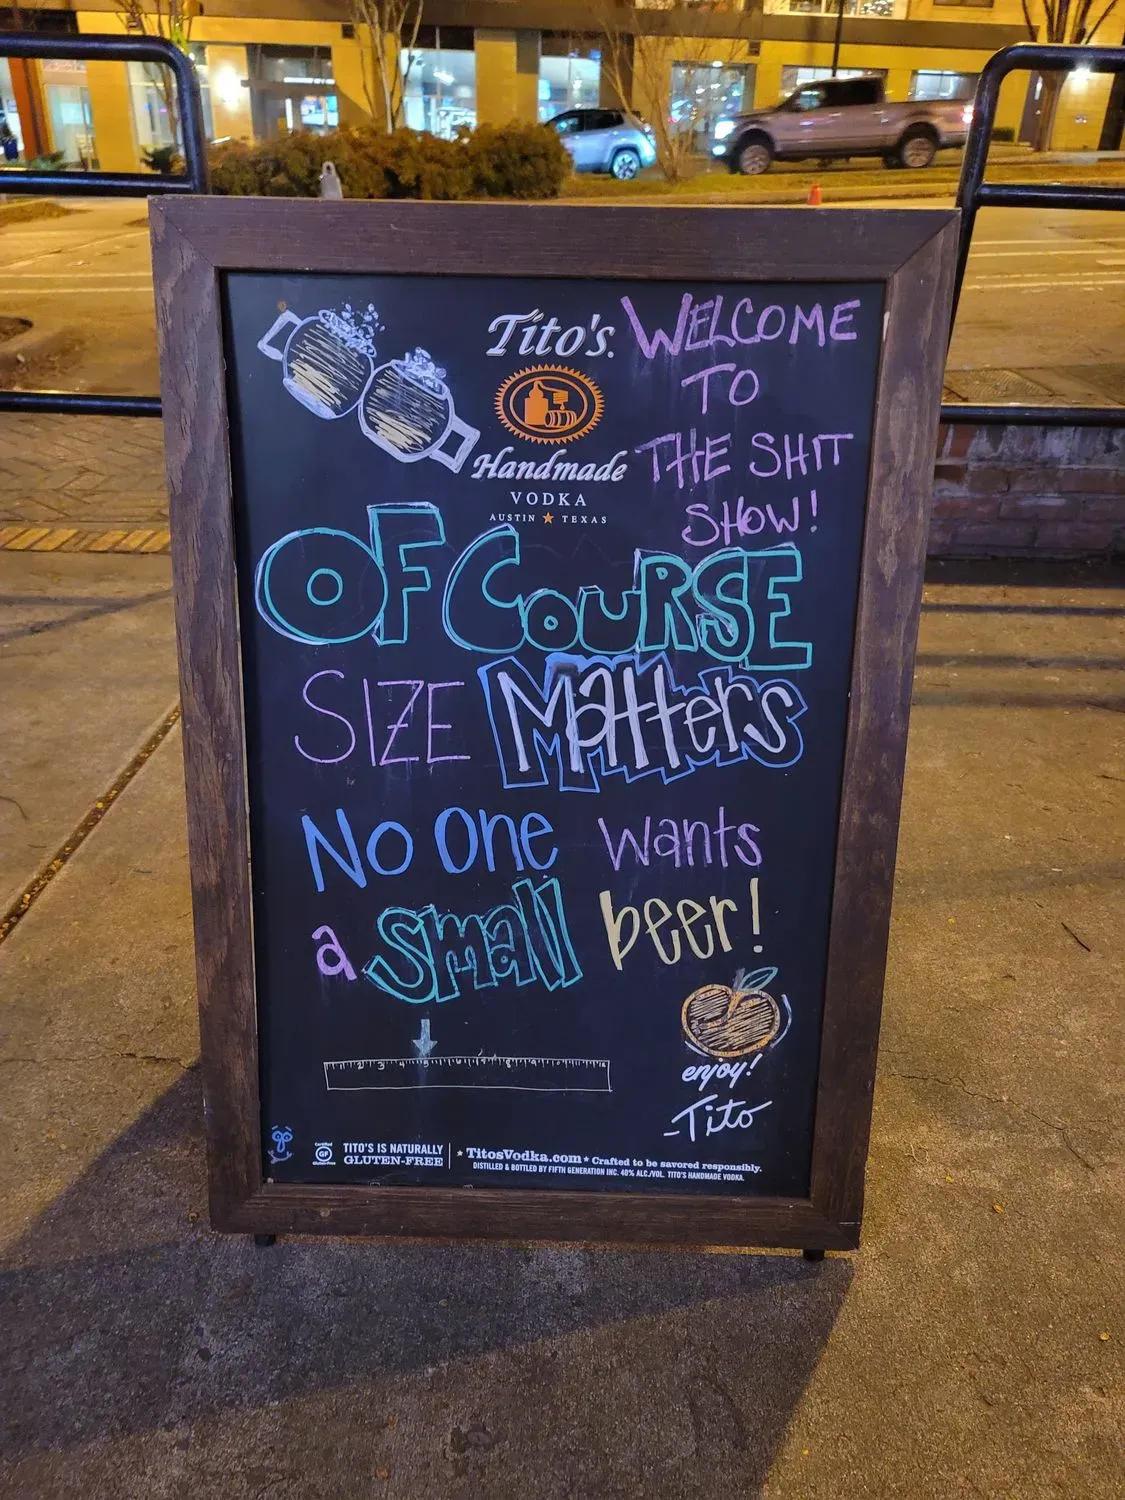 Tito's.
Handmade
VODKA
AUSTIN ★ TEXAS
WELCOME
TO
THE SHIT
SHOW!
OF COURSE
SIZE Matters
No One wants
a small beer!
enjoy!
-Tito
Certified
GF
Gluten-Free
TITO'S IS NATURALLY
GLUTEN-FREE
★ TitosVodka.com ★ Crafted to be savored responsibly.
DISTILLED & BOTTLED BY FIFTH GENERATION INC. 40% ALC./VOL. TITO'S HANDMADE VODKA.